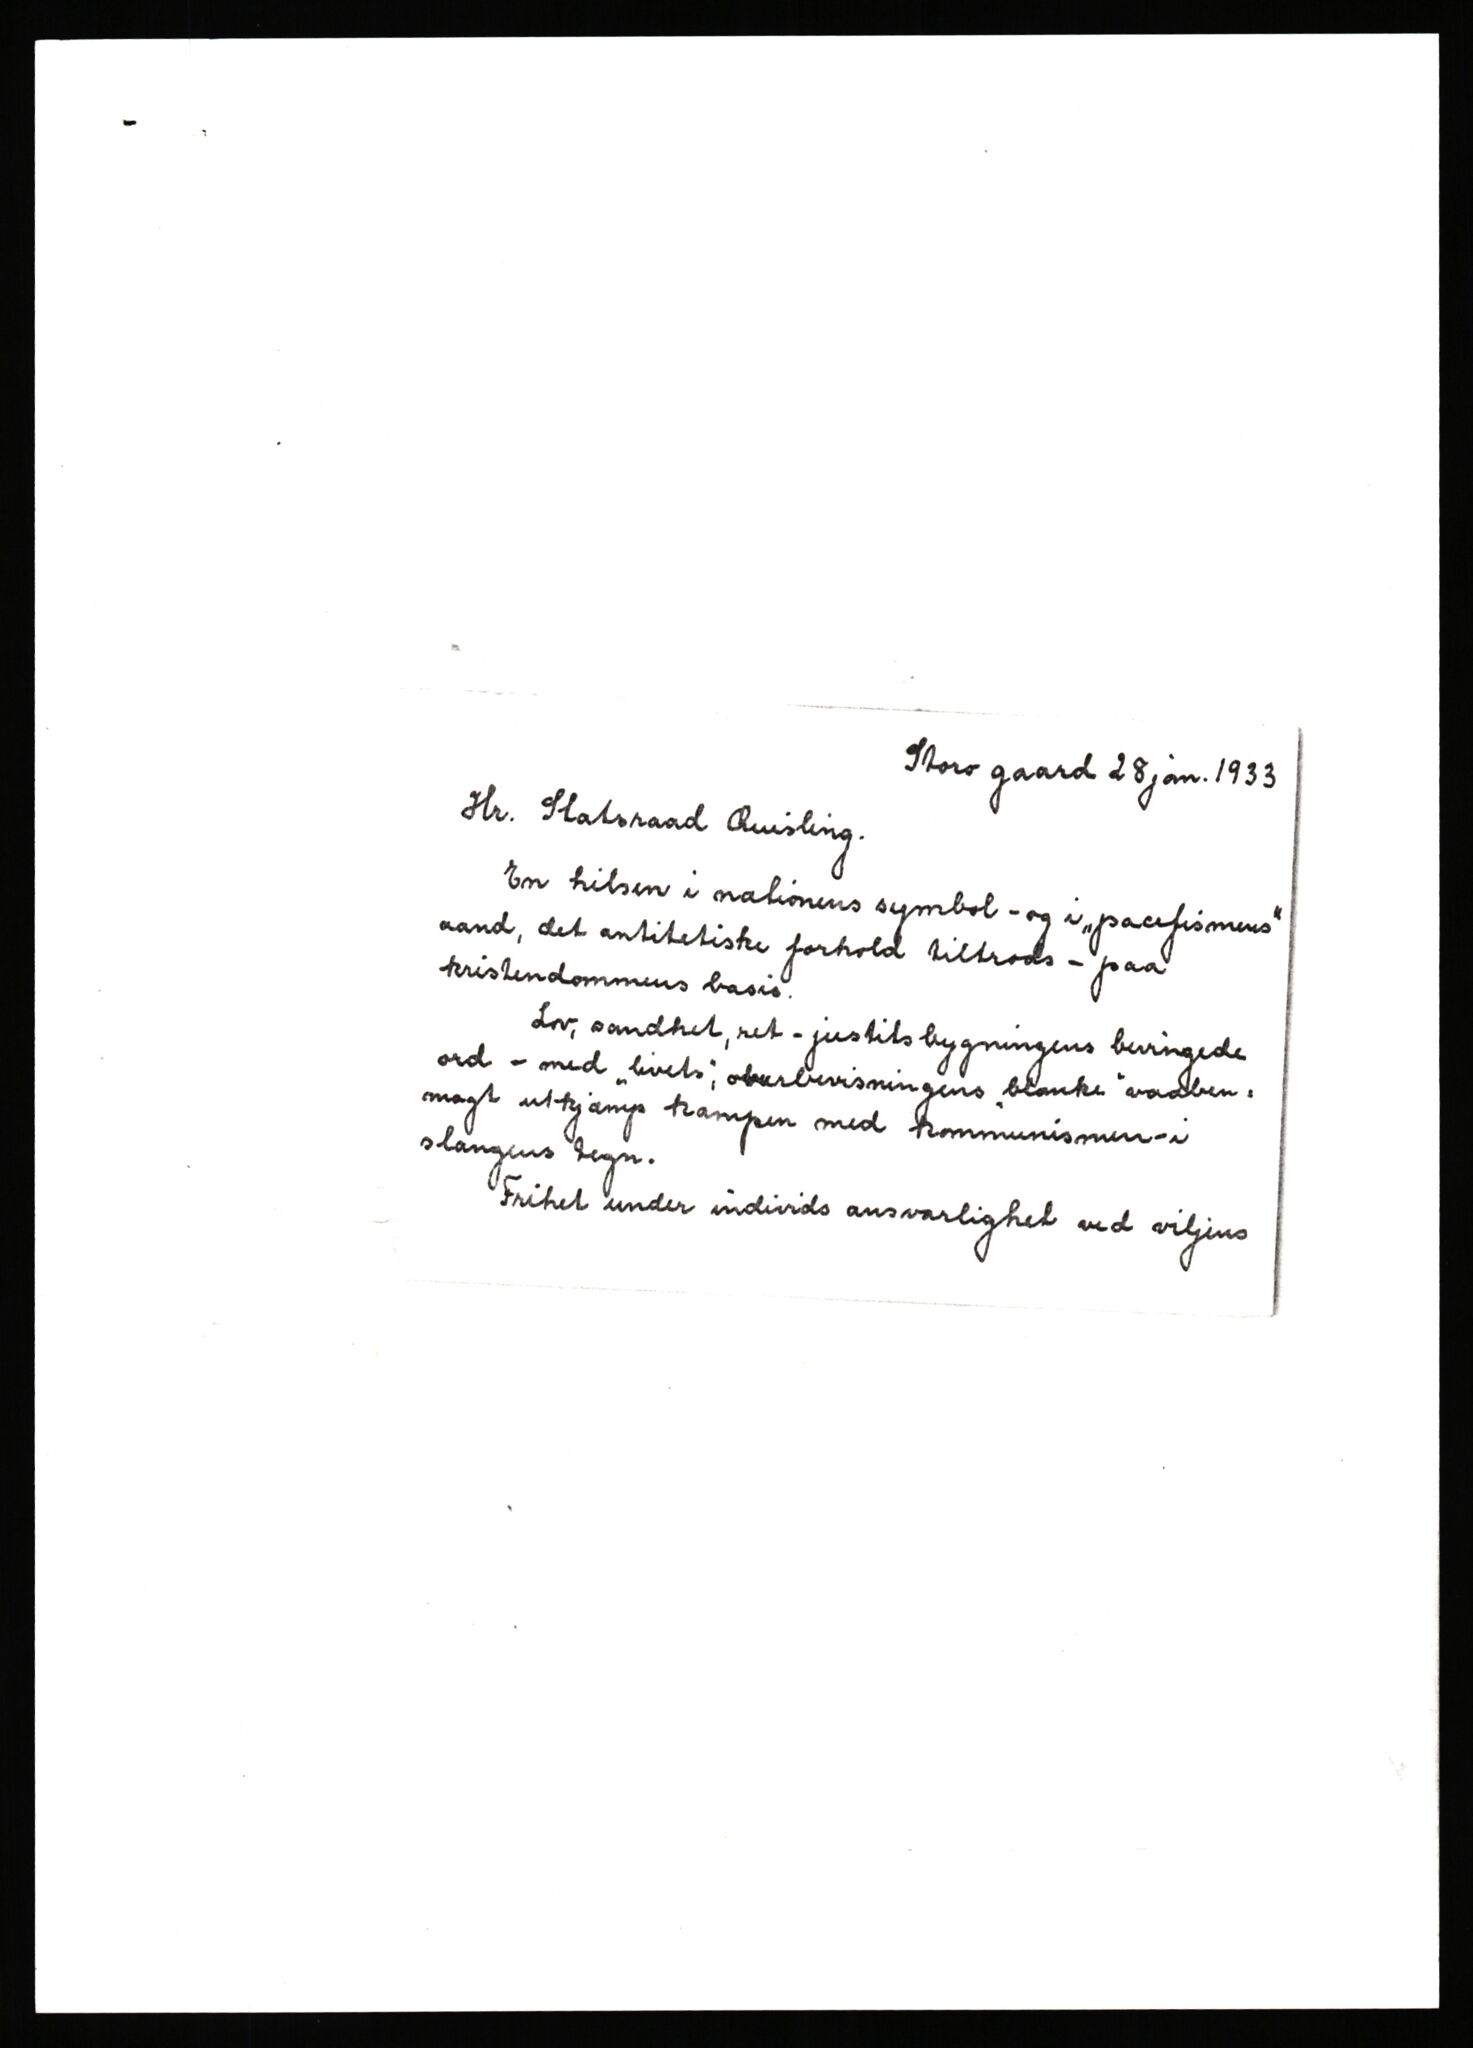 Storo gaard 28 jan. 1933
Hr. Statsraad Quisling.
En hilsen i nationens symbol - og i „pacefismens"
aand, det antitetiske forhold tiltrods - paa
kristendommens basis.
Lov, sandhet, ret - justitsbygningens bevingede
ord - med „livets", overbevisningens „blanke" vaaben:
magt utkjæmp kampen med kommunismen - i
slangens tegn.
Frihet under individs ansvarlighet ved viljens